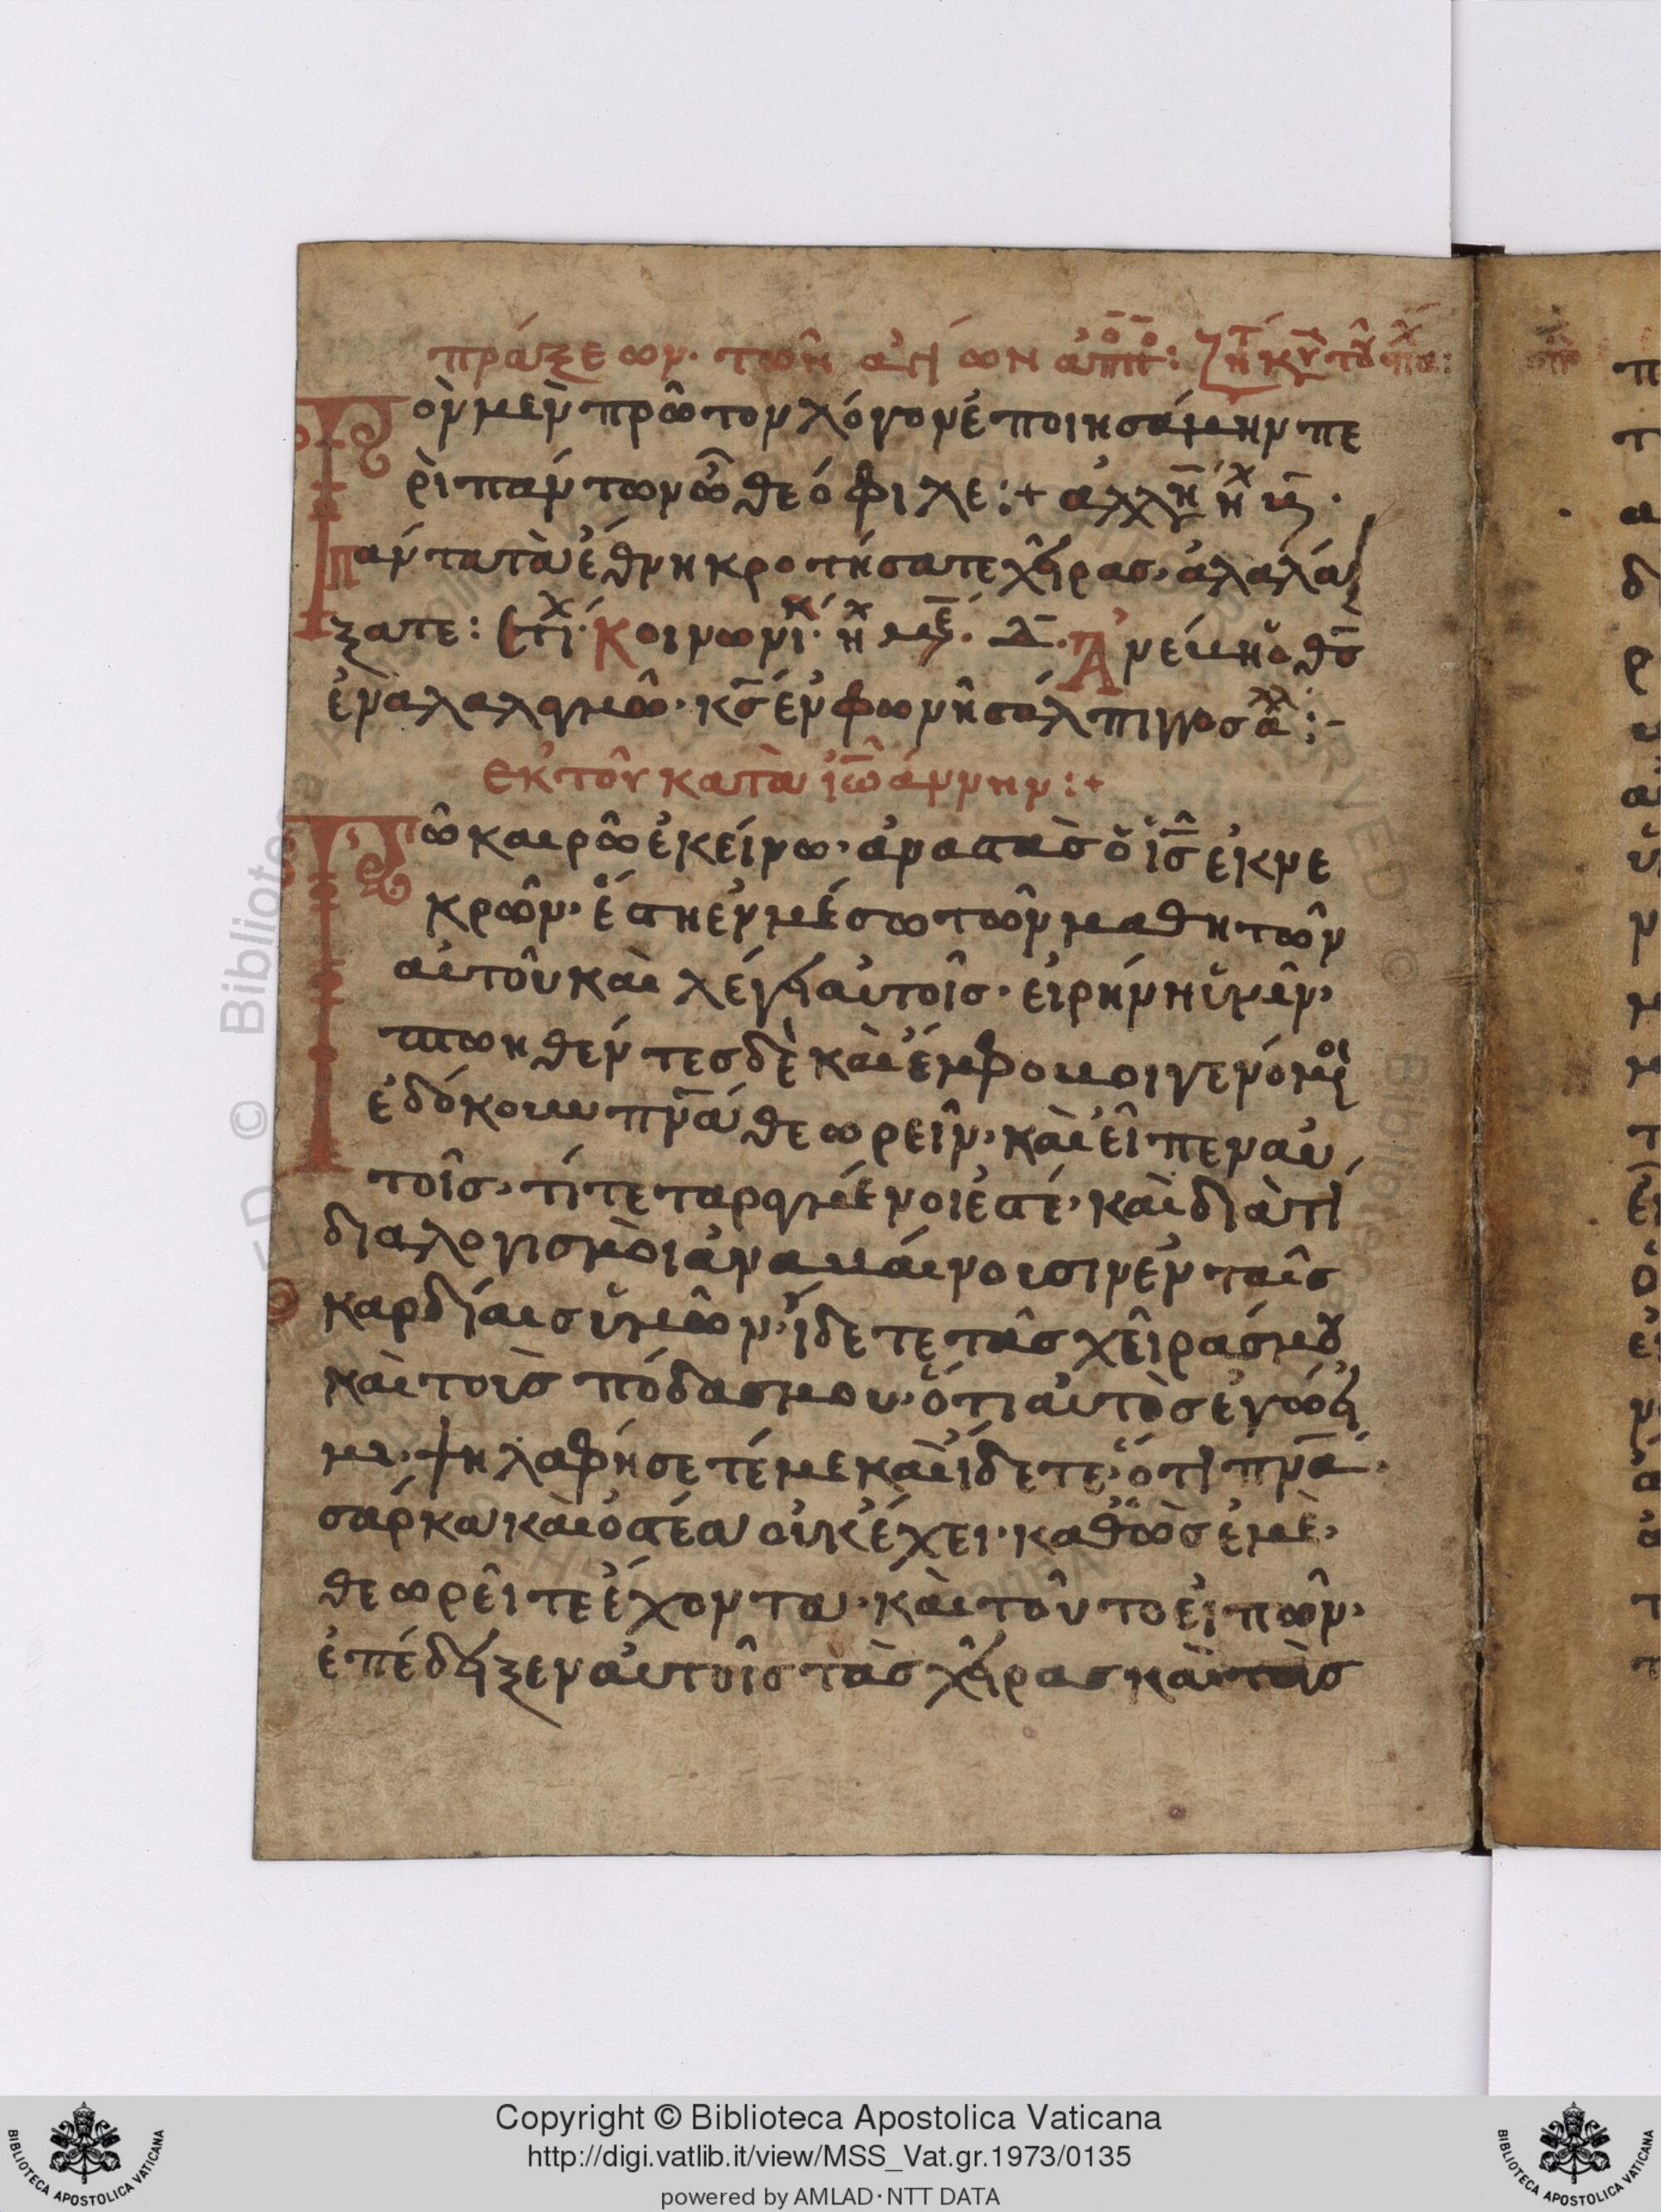 πράξεων· τῶν ἁγίων ἀπο:
ὸν μὲν πρῶτον λόγον ἐποιησάμην πε
ρὶ πάντων ὦ θεόφιλε:+ ἀλλη
Πάντα τὰ ἔθνη κροτήσατε χεῖρας· ἀλαλά
ξατε: Κοινωνι· Ἀνέβη ὁ θς
ἐν ἀλαλαγμῶ· κς ἐν φωνῆ σάλπιγγος ἀλ:-
Ἐκ τοῦ κατὰ ἰωάννην:+
Τῶ καιρῶ ἐκείνω· ἀναστὰς ὁ ις ἐκ νε
κρῶν· ἔστη ἐν μέσω τῶν μαθητῶν
αὐτοῦ καὶ λέγει αὐτοῖς· εἰρήνη ὑμῖν·
πτωηθέντες δὲ καὶ ἔμφοβοι γενόμοι
ἐδόκουν πνα θεωρεῖν· καὶ εἶπεν αὐ
τοῖς· τί τεταραγμένοι ἐστέ· καὶ διὰ τί
διαλογισμοὶ ἀναβαίνουσιν ἐν ταῖς
καρδίαις ὑμῶν· ἴδετε τὰς χεῖράς μου
καὶ τοὺς πόδας μου· ὅτι αὐτὸς ἐγώ εἰ
μι· ψηλαφήσετέ με καὶ ἴδετε· ὅτι πνα·
σάρκα καὶ ὀστέα οὐκ ἔχει· καθὼς ἐμὲ·
θεωρεῖτε ἔχοντα· καὶ τοῦτο εἰπῶν·
ἐπέδειξεν αὐτοῖς τὰς χεῖρας καὶ τοὺς
Copyright © Biblioteca Apostolica Vaticana
http://digi.vatlib.it/view/MSS_Vat.gr.1973/0135
powered by AMLAD·NTT DATA
BIBLIOTECA APOSTOLICA VATICANA
BIBLIOTECA APOSTOLICA VATICANA